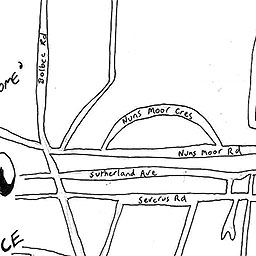 Dolbee Rd
OME'
Nuns Moor Cres
Nuns Moor Rd
Sutherland Ave
Severus Rd
CE